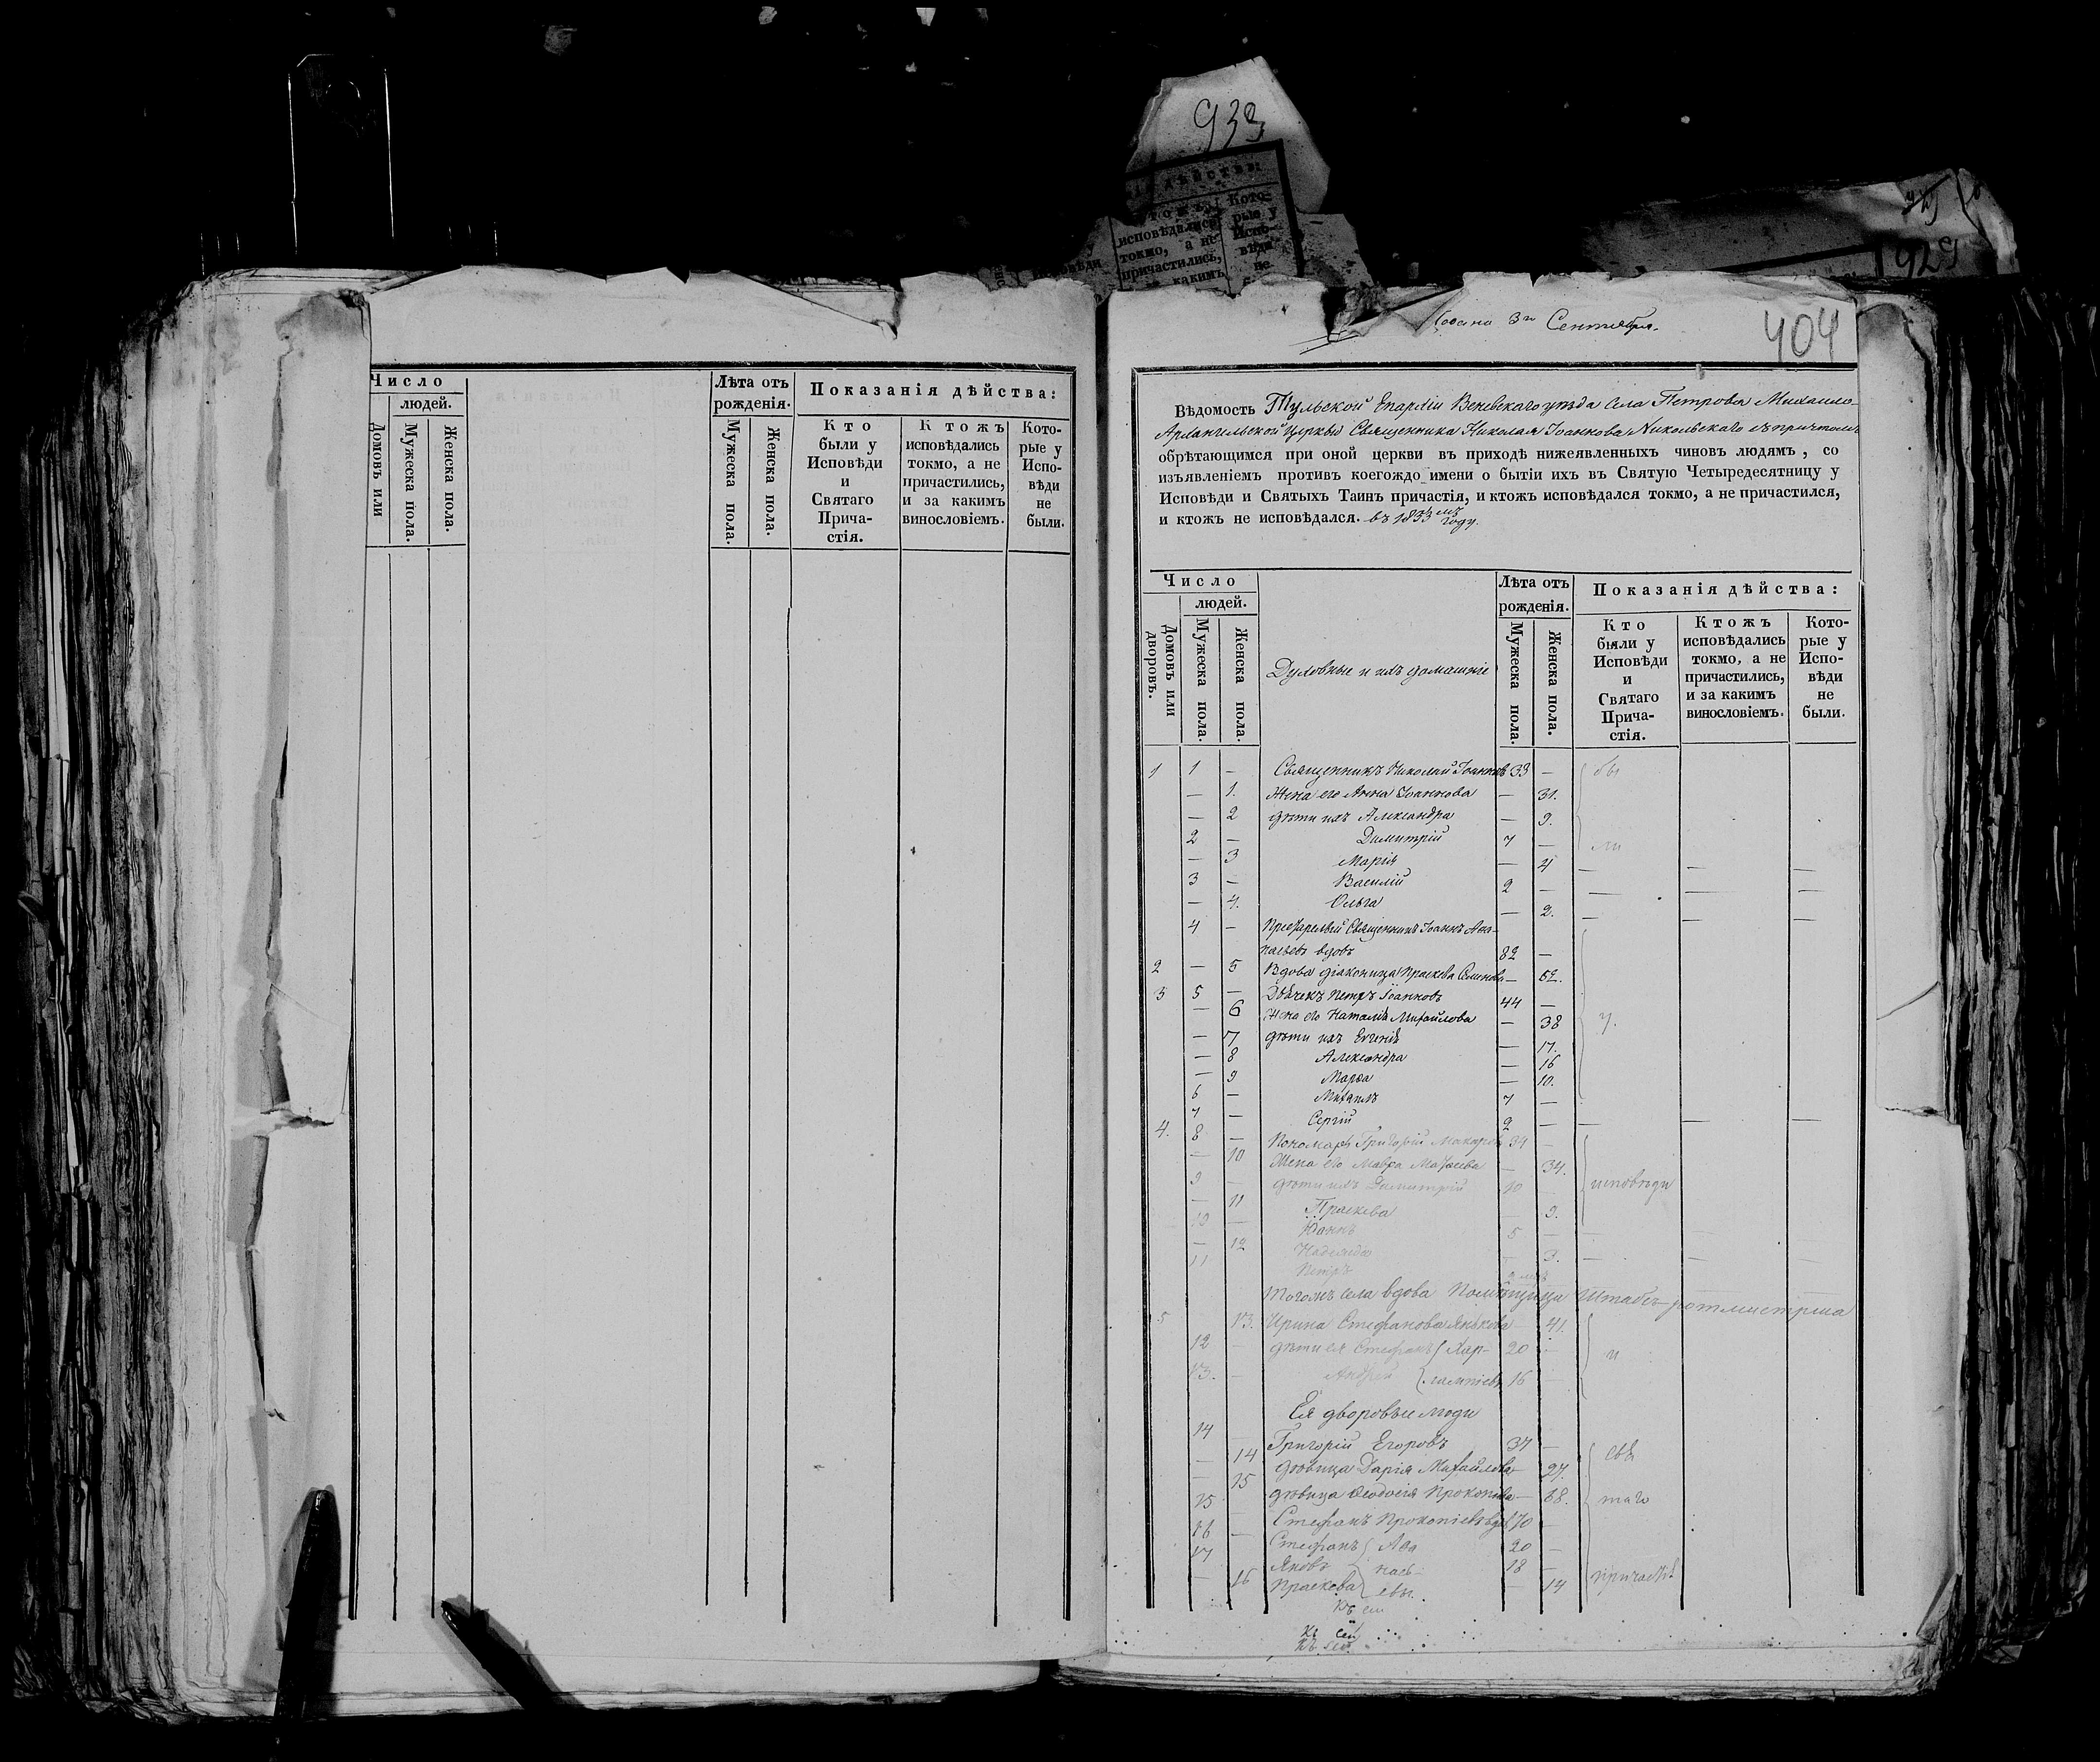 933
929
исповѣдались
токмо, а не
причастились,
какимъ
Кото-
рые у
Испо-
вѣди
не
Число
людей.
Домовъ или
Мужеска пола.
Женска пола.
Лѣта отъ
рожденія.
Мужеска пола.
Женска пола.
Показанія дѣйства:
Кто
были у
Исповѣди
и
Святаго
Прича-
стія.
Ктожъ
исповѣдались
токмо, а не
причастились,
и за какимъ
винословіемъ.
Кото-
рые у
Испо-
вѣди
не
были.
3го Сентября.
404
Вѣдомость Тульской Епархіи Веневскаго уѣзда Села Петрова Михаило-
Архангельской Церкви Священника Николая Іоаннова Никольскаго съ причтомъ
обрѣтающимся при оной церкви въ приходѣ нижеявленныхъ чиновъ людямъ, со
изъявленіемъ противъ коегождо имени о бытіи ихъ въ Святую Четыредесятницу у
Исповѣди и Святыхъ Таинъ причастія, и ктожъ исповѣдался токмо, а не причастился,
и ктожъ не исповѣдался. въ 1833мъ году.
Число
людей.
Домовъ или
дворовъ.
Мужеска пола.
Женска пола.
Духовные и ихъ домашніе
Лѣта отъ
рожденія.
Мужеска пола.
Женска пола.
Показанія дѣйства:
Кто
были у
Исповѣди
и
Святаго
Прича-
стія.
Ктожъ
исповѣдались
токмо, а не
причастились,
и за какимъ
винословіемъ.
Кото-
рые у
Испо-
вѣди
не
были.
1 1 — Священникъ Николай Іоанновъ 33 — бы
— 1. Жена его Анна Іоаннова — 31.
— 2 дѣти ихъ Александра — 9.
2 — Димитрій 7 — ли
— 3 Марія — 4 — — —
3 — Василій 2 — — — —
— 4. Ольга — 2. — — —
4 — Священникъ Іоаннъ
вдовъ 82 —
2 — 5 Вдова діаконица Праскева Семенова — 62.
3 5 — Дьячекъ Петръ Іоанновъ 44 —
— 6 Жена его Наталія Михайлова — 38 у.
— 7 дѣти ихъ Евгенія — 17.
— 8 Александра — 16
— 9 Марѳа — 10.
6 — Михаилъ 7 —
7 — Сергій 2 — — — —
4. 8 — Пономарь Григорій Макаровъ 34 —
— 10 Жена его Мавра — 34.
9 — дѣти ихъ Димитрій 10 — исповѣди
— 11 Праскева — 9.
10 — Іоаннъ 5 — — — —
— 12 Надежда — 3. — —
11 Петръ
Тогожъ села вдова Помѣщица Штабъ-ротмистрша
5 13. Ирина Стефанова — 41.
12 — дѣти ея Стефанъ { Хар- 20 — и
13. — Андрей { лампіевы 16 —
Ея дворовые люди
14 Григорій Егоровъ 37 —
— 14 дѣвица Дарія Михайлова — 27. свя
— 15 дѣвица Ѳеодосія Прокопіева — 28. таго
15 — Стефанъ Прокопіевъ вдовъ 70 —
16 — Стефанъ { Аѳа 20 —
17 Яковъ { нась- 18 —
— 16 Праскева { евы. — 14 причасті